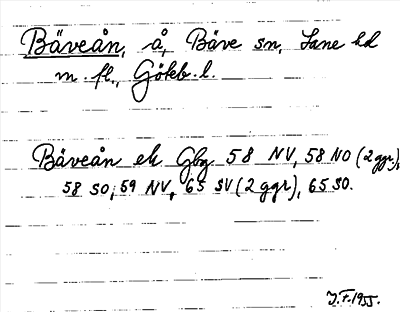 Bäveån, å, Bäve sn, Lane hd
m. fl., Göteb. l.
Bäveån ek Gbg 58 NV, 58 NO (2 ggr),
58 SO, 59 NV, 65 SV (2 ggr), 65 SO.
J.F. 1955.